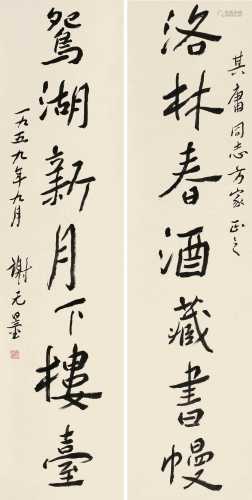 其庸同志方家正之
洛林春酒藏書幔
鴛湖新月下樓臺
一九五九年九月 謝无量